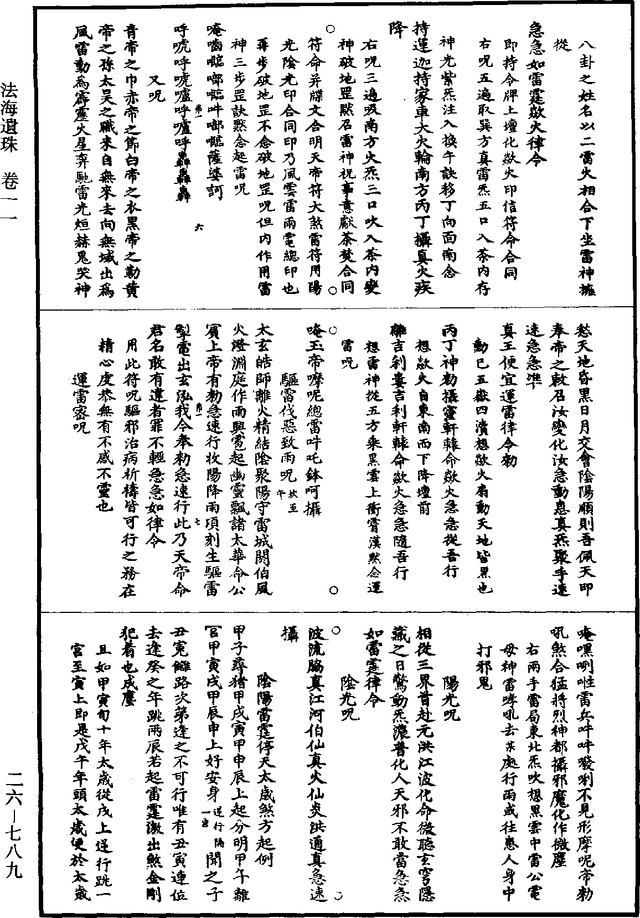 八卦之姓名以二雷火相合下坐雷神擁
從
急急如雷霆歘火律令
即持令牌上壇化歘火印信符命合同
右呪五遍取巽方真雷炁五口入茶内存
神光紫炁注入換午訣移丁向面南念
持運迦持家車大火輪南方丙丁攝真火疾
降
右呪三遍吸南方火炁三口吹入茶内變
神破地罡默召雷神祝事意獻茶焚合同
符命并牒文合明天帝符大煞雷符用陽
光陰光印合同印乃風雲雷雨電總印也
再步破地罡不念破地罡呪但内作用雷
神三步罡訣默念起雷呪
唵嚙㘄㘄吽㘄薩婆訶
呼唬呼唬嚧呼嚧呼轟轟轟
又呪
青帝之巾赤帝之節白帝之衣黑帝之勒黄
帝之孫太昊之職來自無來去向無域出為
風雷動為霹靂火星奔馳雷光烜赫鬼哭神
愁天地昏黑日月交會陰陽順則吾佩天印
奉帝之敕召汝變化汝急動息真炁聚手速
速急急準
真王便宜運雷律令勅
動已五嶽四瀆想歘火扇動天地皆黑也
丙丁神勅攝靈軒轅命歘火急急從吾行
想歘火自東南而下降壇前
離吉利婁吉利軒轅命歘火急急隨吾行
想雷神從五方乘黑雲上衝霄漢默念運
雷呪
唵玉帝嚤呢總雷吽吒鉢呵攝
驅雷伐惡致雨呪
太玄皓師離火精結陰聚陽守雷城閼伯風
火澄淵庭作雨興電起幽靈飄諸太華命公
賓上帝有勅急速行收陽降雨項刻生驅雷
掣電出玄泓我今奉勅急速行此乃天帝命
君名敢有違者罪不輕急急如律令
用此符呪驅邪治病祈禱皆可行之務在
精心虔恭無有不感不靈也
運雷密呪
唵嘿唎唯雷兵吽吽㗼唎不見形摩呢帝勅
吼煞合猛將烈神都攝邪魔化作微塵
右兩手雷局東北炁吹想黑雲中雷公電
母神雷哮吼去某處行雨或往患人身中
打邪鬼
陽光呪
相從三界首赴元洪江波化命微聽玄穹隱
藏之日驚動炁濃普化人天邪不敢當急急
如雷霆律令
陰光呪
波流脇真江河伯仙真火仙炎洪通真急速
攝
陰陽雷霆停天太歲煞方起例
甲子尋猪甲戌寅甲申辰上起分明甲午離
宮甲寅戌甲辰申上好安身逆行隔一宮閗之子
丑寃讎路次第逢之不可行唯有丑寅連位
去逢癸之年跳兩辰若起雷霆激出煞金剛
犯着也成塵
且如甲寅旬十年太歲從戌上逆行跳一
宮至寅上即是戊午年頭太歲便於太歲
法海遺珠 卷一一
二六—七八九